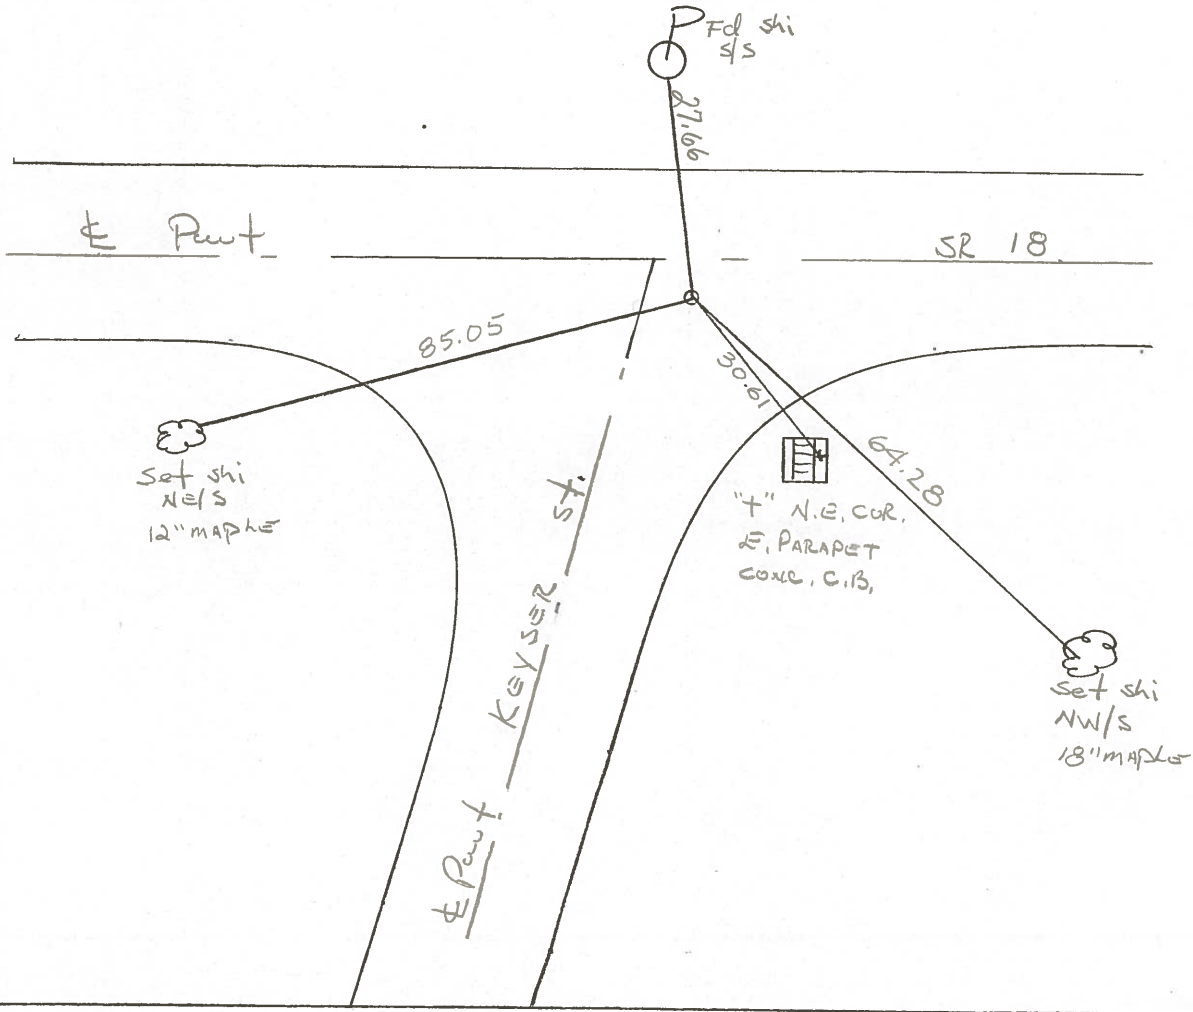 P
Fd shi
S/S
27.66
℄ Pavt
SR 18
85.05
30.61
64.28
Set shi
NE/S
12" MAPLE
"+" N.E. COR.
E. PARAPET
CONC. C.B.
℄ Pavt. KEYSER St.
Set shi
NW/S
18" MAPLE